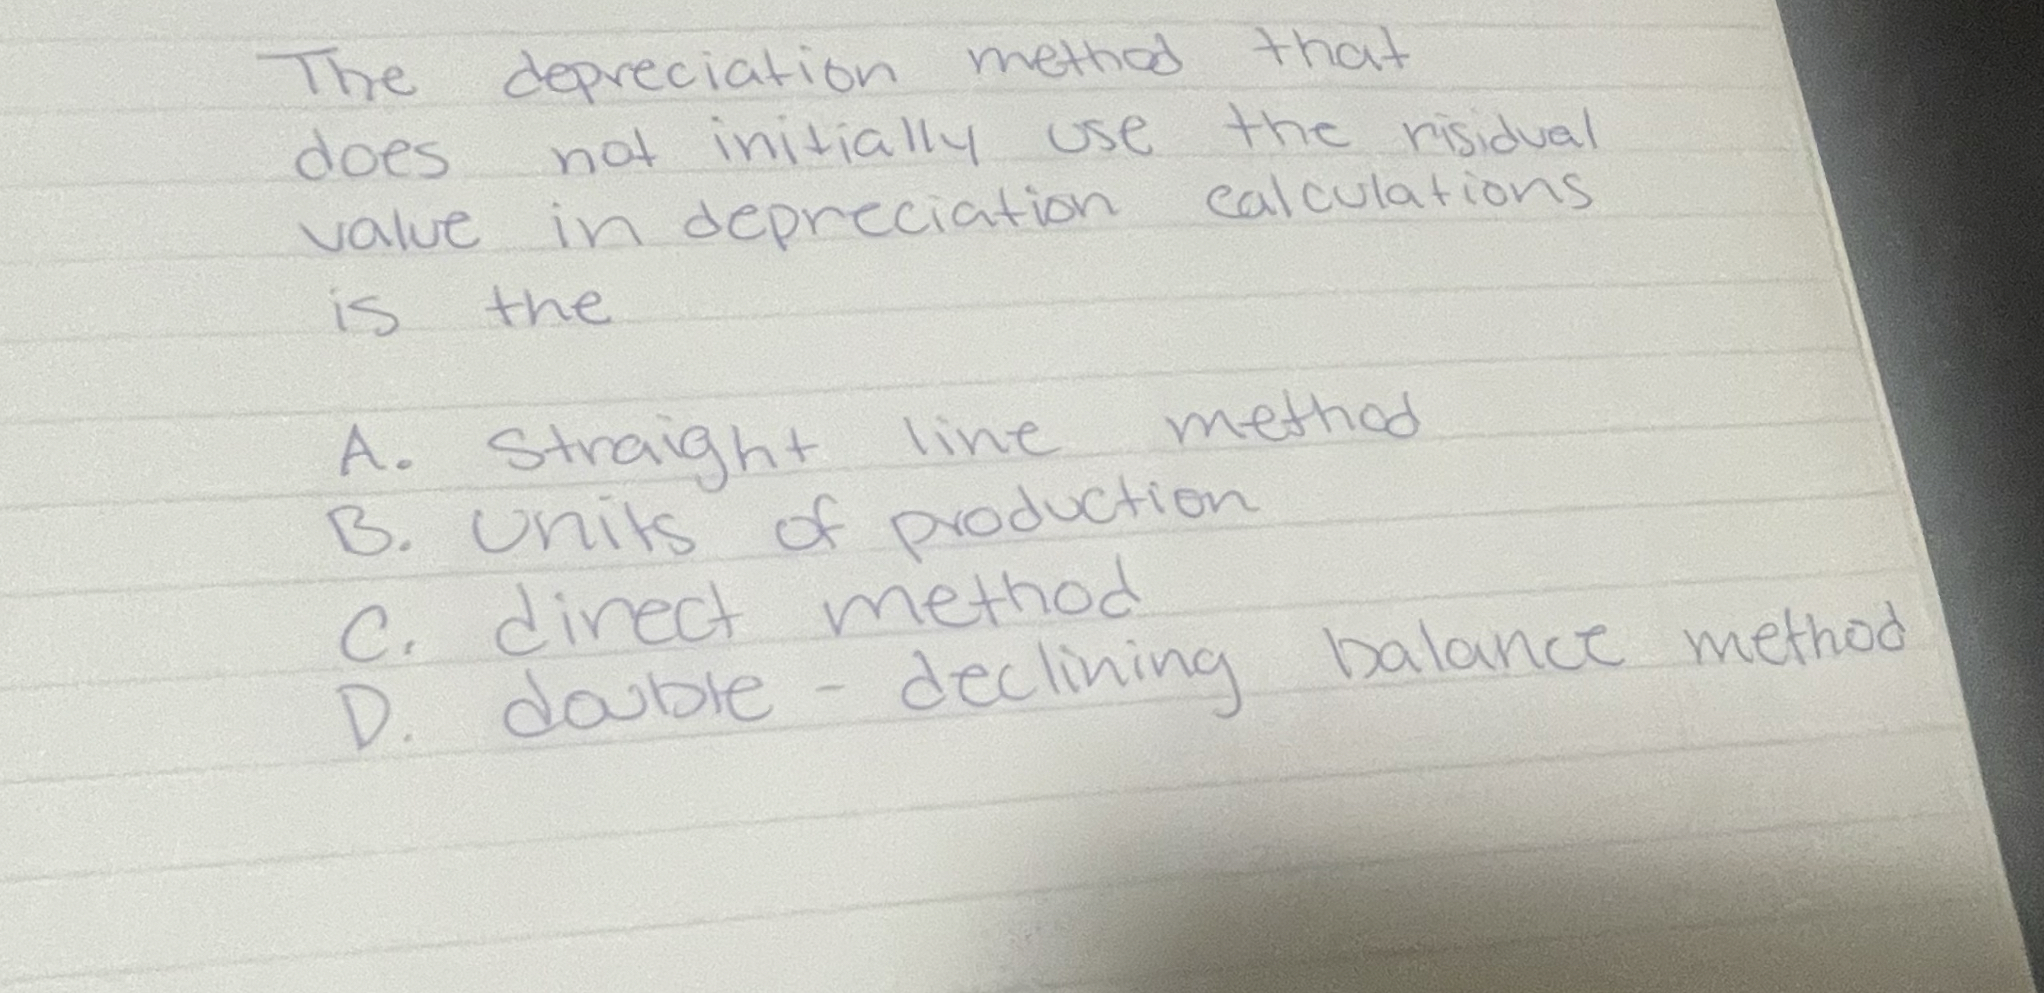 The depreciation method that
does not initially use the risidual
value in depreciation calculations
is the
A. Straight line method
B. Units of production
C. direct method
D. double - declining balance method